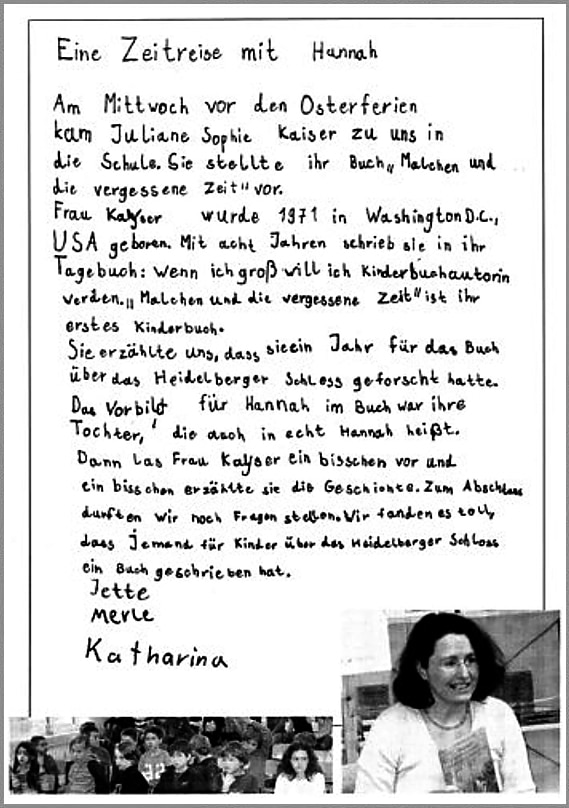 Eine Zeitreise mit Hannah
Am Mittwoch vor den Osterferien
kam Juliane Sophie Kaiser zu uns in
die Schule. Sie stellte ihr Buch „Malchen und
die vergessene Zeit" vor.
Frau Kayser wurde 1971 in Washington D.C.,
USA geboren. Mit acht Jahren schrieb sie in ihr
Tagebuch: Wenn ich groß will ich Kinderbuchautorin
werden. „Malchen und die vergessene Zeit" ist ihr
erstes Kinderbuch.
Sie erzählte uns, dass sie ein Jahr für das Buch
über das Heidelberger Schloss geforscht hatte.
Das Vorbild für Hannah im Buch war ihre
Tochter, die auch in echt Hannah heißt.
Dann las Frau Kayser ein bisschen vor und
ein bisschen erzählte sie die Geschichte. Zum Abschluss
durften wir noch Fragen stellen. Wir fanden es toll,
dass jemand für Kinder über das Heidelberger Schloss
ein Buch geschrieben hat.
Jette
Merle
Katharina